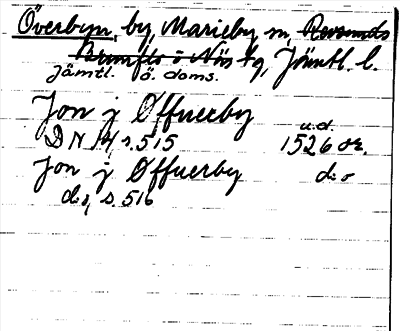 Överbyn, by, Marieby sn, Revsunds
Brunflo o Näs tg, Jämtl. l.
Jämtl. ö. doms.
Jon j Øffuerby
u.d.
DN 14, s. 515 1526 or.
Jon j Øffuerby d:o
d:o, s. 516